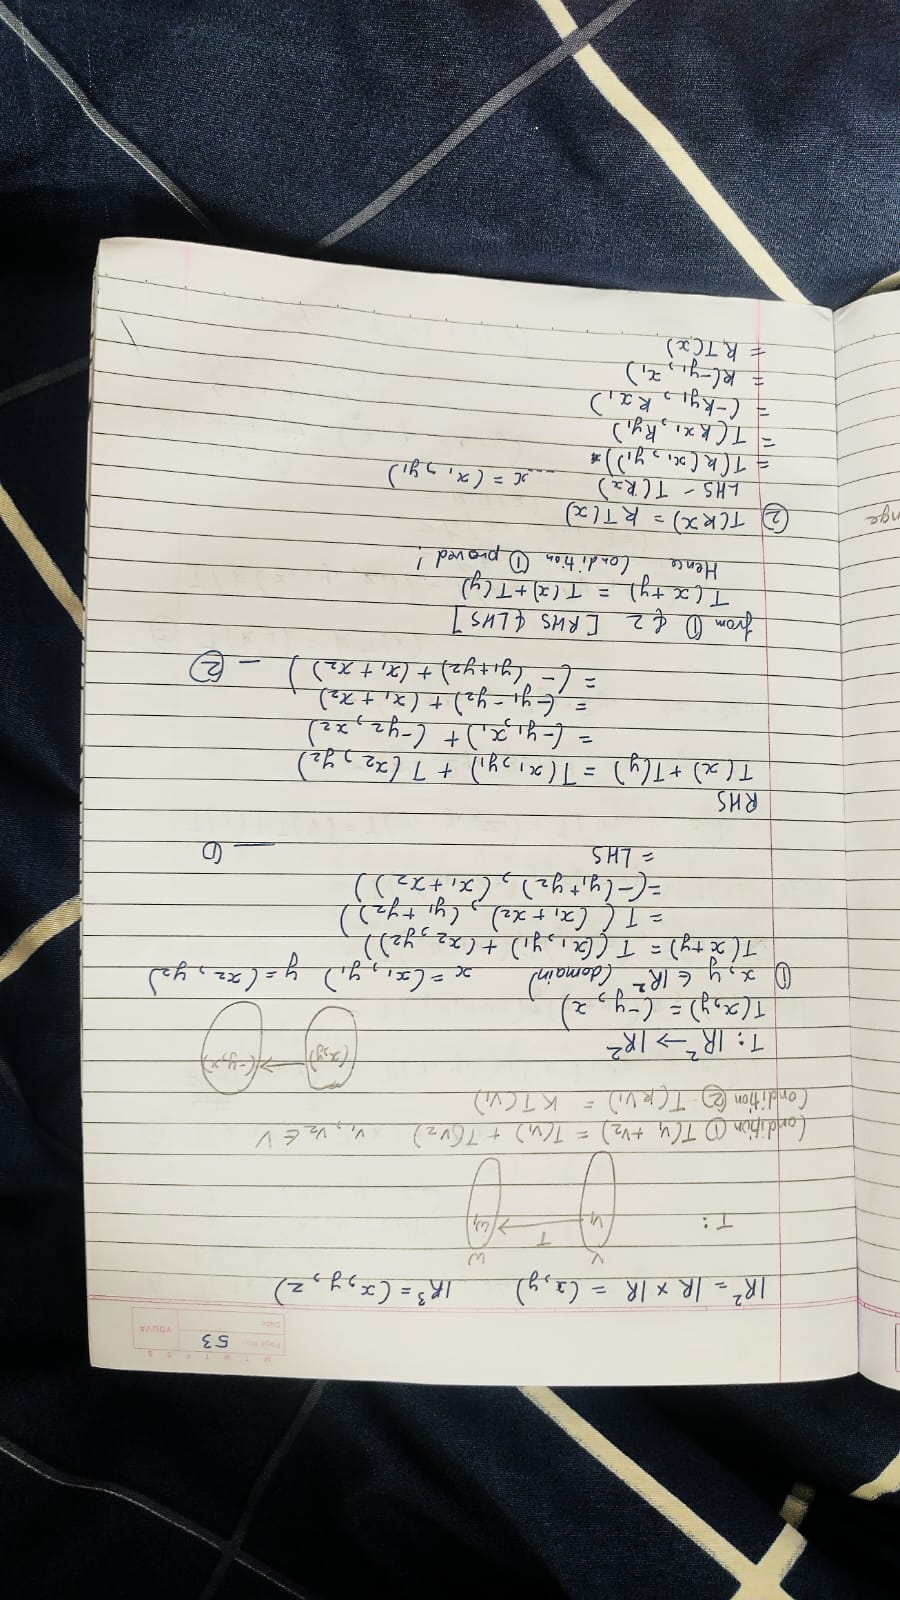 M T W T F S S
Page No.: 53
Date:
YOUVA
IR² = IR x IR = (x,y) IR³ = (x, y, z)
V W
T: v₁ T w₁
Condition ① T(v₁ + v₂) = T(v₁) + T(v₂) v₁, v₂ ∈ V
Condition ② T(kv₁) = KT(v₁)
(x,y) → (-y,x)
T: IR² → IR²
T(x,y) = (-y, x)
① x, y ∈ IR² (domain) x = (x₁, y₁) y = (x₂, y₂)
T(x+y) = T((x₁, y₁) + (x₂, y₂))
= T( (x₁ + x₂), (y₁ + y₂))
= (-(y₁+y₂), (x₁+x₂))
= LHS — ①
RHS
T(x) + T(y) = T(x₁, y₁) + T(x₂, y₂)
= (-y₁, x₁) + (-y₂, x₂)
= (-y₁ - y₂) + (x₁ + x₂)
= (- (y₁+y₂) + (x₁ + x₂)) — ②
from ① & 2 [RHS & LHS]
T(x+y) = T(x)+T(y)
Hence Condition ① proved!
nge
② T(kx) = kT(x)
LHS - T(kx) ... x = (x₁, y₁)
= T(k(x₁, y₁))
= T(kx₁, ky₁)
= (-ky₁, kx₁)
= k(-y₁, x₁)
= kT(x)